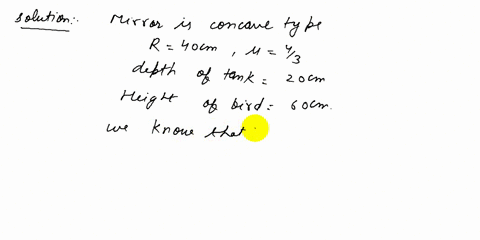 Solution:-
Mirror is concave type
R = 40cm , μ = 4/3
depth of tank = 20cm
Height of bird = 60cm.
we know that :